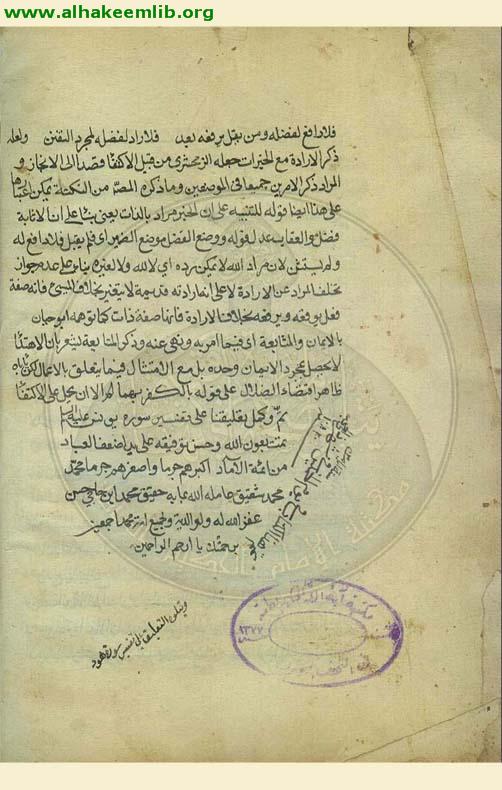 www.alhakeemlib.org
فلا دافع لفضله ومن يقل برفعه بعيد فلا راد لفضله لمجرد التفنن ولعله
ذكر الارادة مع الخيرات جعله الزمخشرى من قبل الاكتفا قصدا الى الايجاز و
المراد ذكر الامرين جميعا فى الموضعين وما ذكره المصر من النكتة يمكن
على هذا ايضا قوله للتنبيه على ان الخير مراد بالذات يعنى على ان الاثابة
فضل والعقاب عدل قوله ووضع الفضل موضع الضمير اى فلم يقل فلا دافع له
ولم يستثن لان مراد الله لا يمكن رده اى لا لله ولا لغيره بنا على عدم جواز
تخلف المراد عن الارادة لا على ان ارادته قديمة لا يتغير بخلاف المس فانه صفة
فعل يوقعه ويرفعه بخلاف الارادة فانها صفة ذات كما توهمه ابو حيان
بالايمان والمتابعة اى فيما امر به ونهى عنه وذكر المتابعة يشعر بان الاهتدا
لا يحصل بمجرد الايمان وحده بل مع الامتثال فيما يتعلق بالاعمال
ظاهر اقتضاء الضلال على قوله بالكفر بهما الا ان يحمل على الاكتفا
تم وكمل تعليقنا على تفسير سورة يونس عليه
بعون الله وحسن توفيقه على يد اضعف العباد
من امة الآماد اكبرهم جرما واصغرهم جرما محمد
محمد شفيق عامله الله حقيق محمد ابن حاجى حسن
غفر الله له ولوالديه ولجميع امة محمد اجمعين
برحمتك يا ارحم الراحمين
ويتلوه التعليقات تفسير سورة هود
مكتبة آية الله
١٣٧٧
النجف